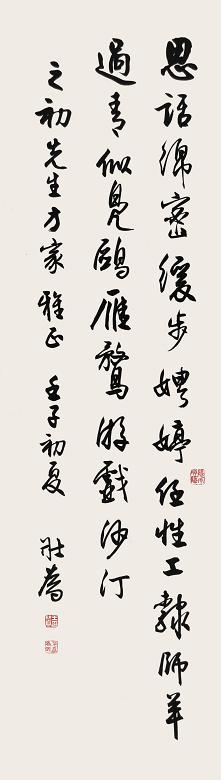 思話綿密緩步娉婷任性工隸師羊
過青似鳧鷗雁鶩游戲沙汀
之初先生方家雅正 壬子初夏 壯為